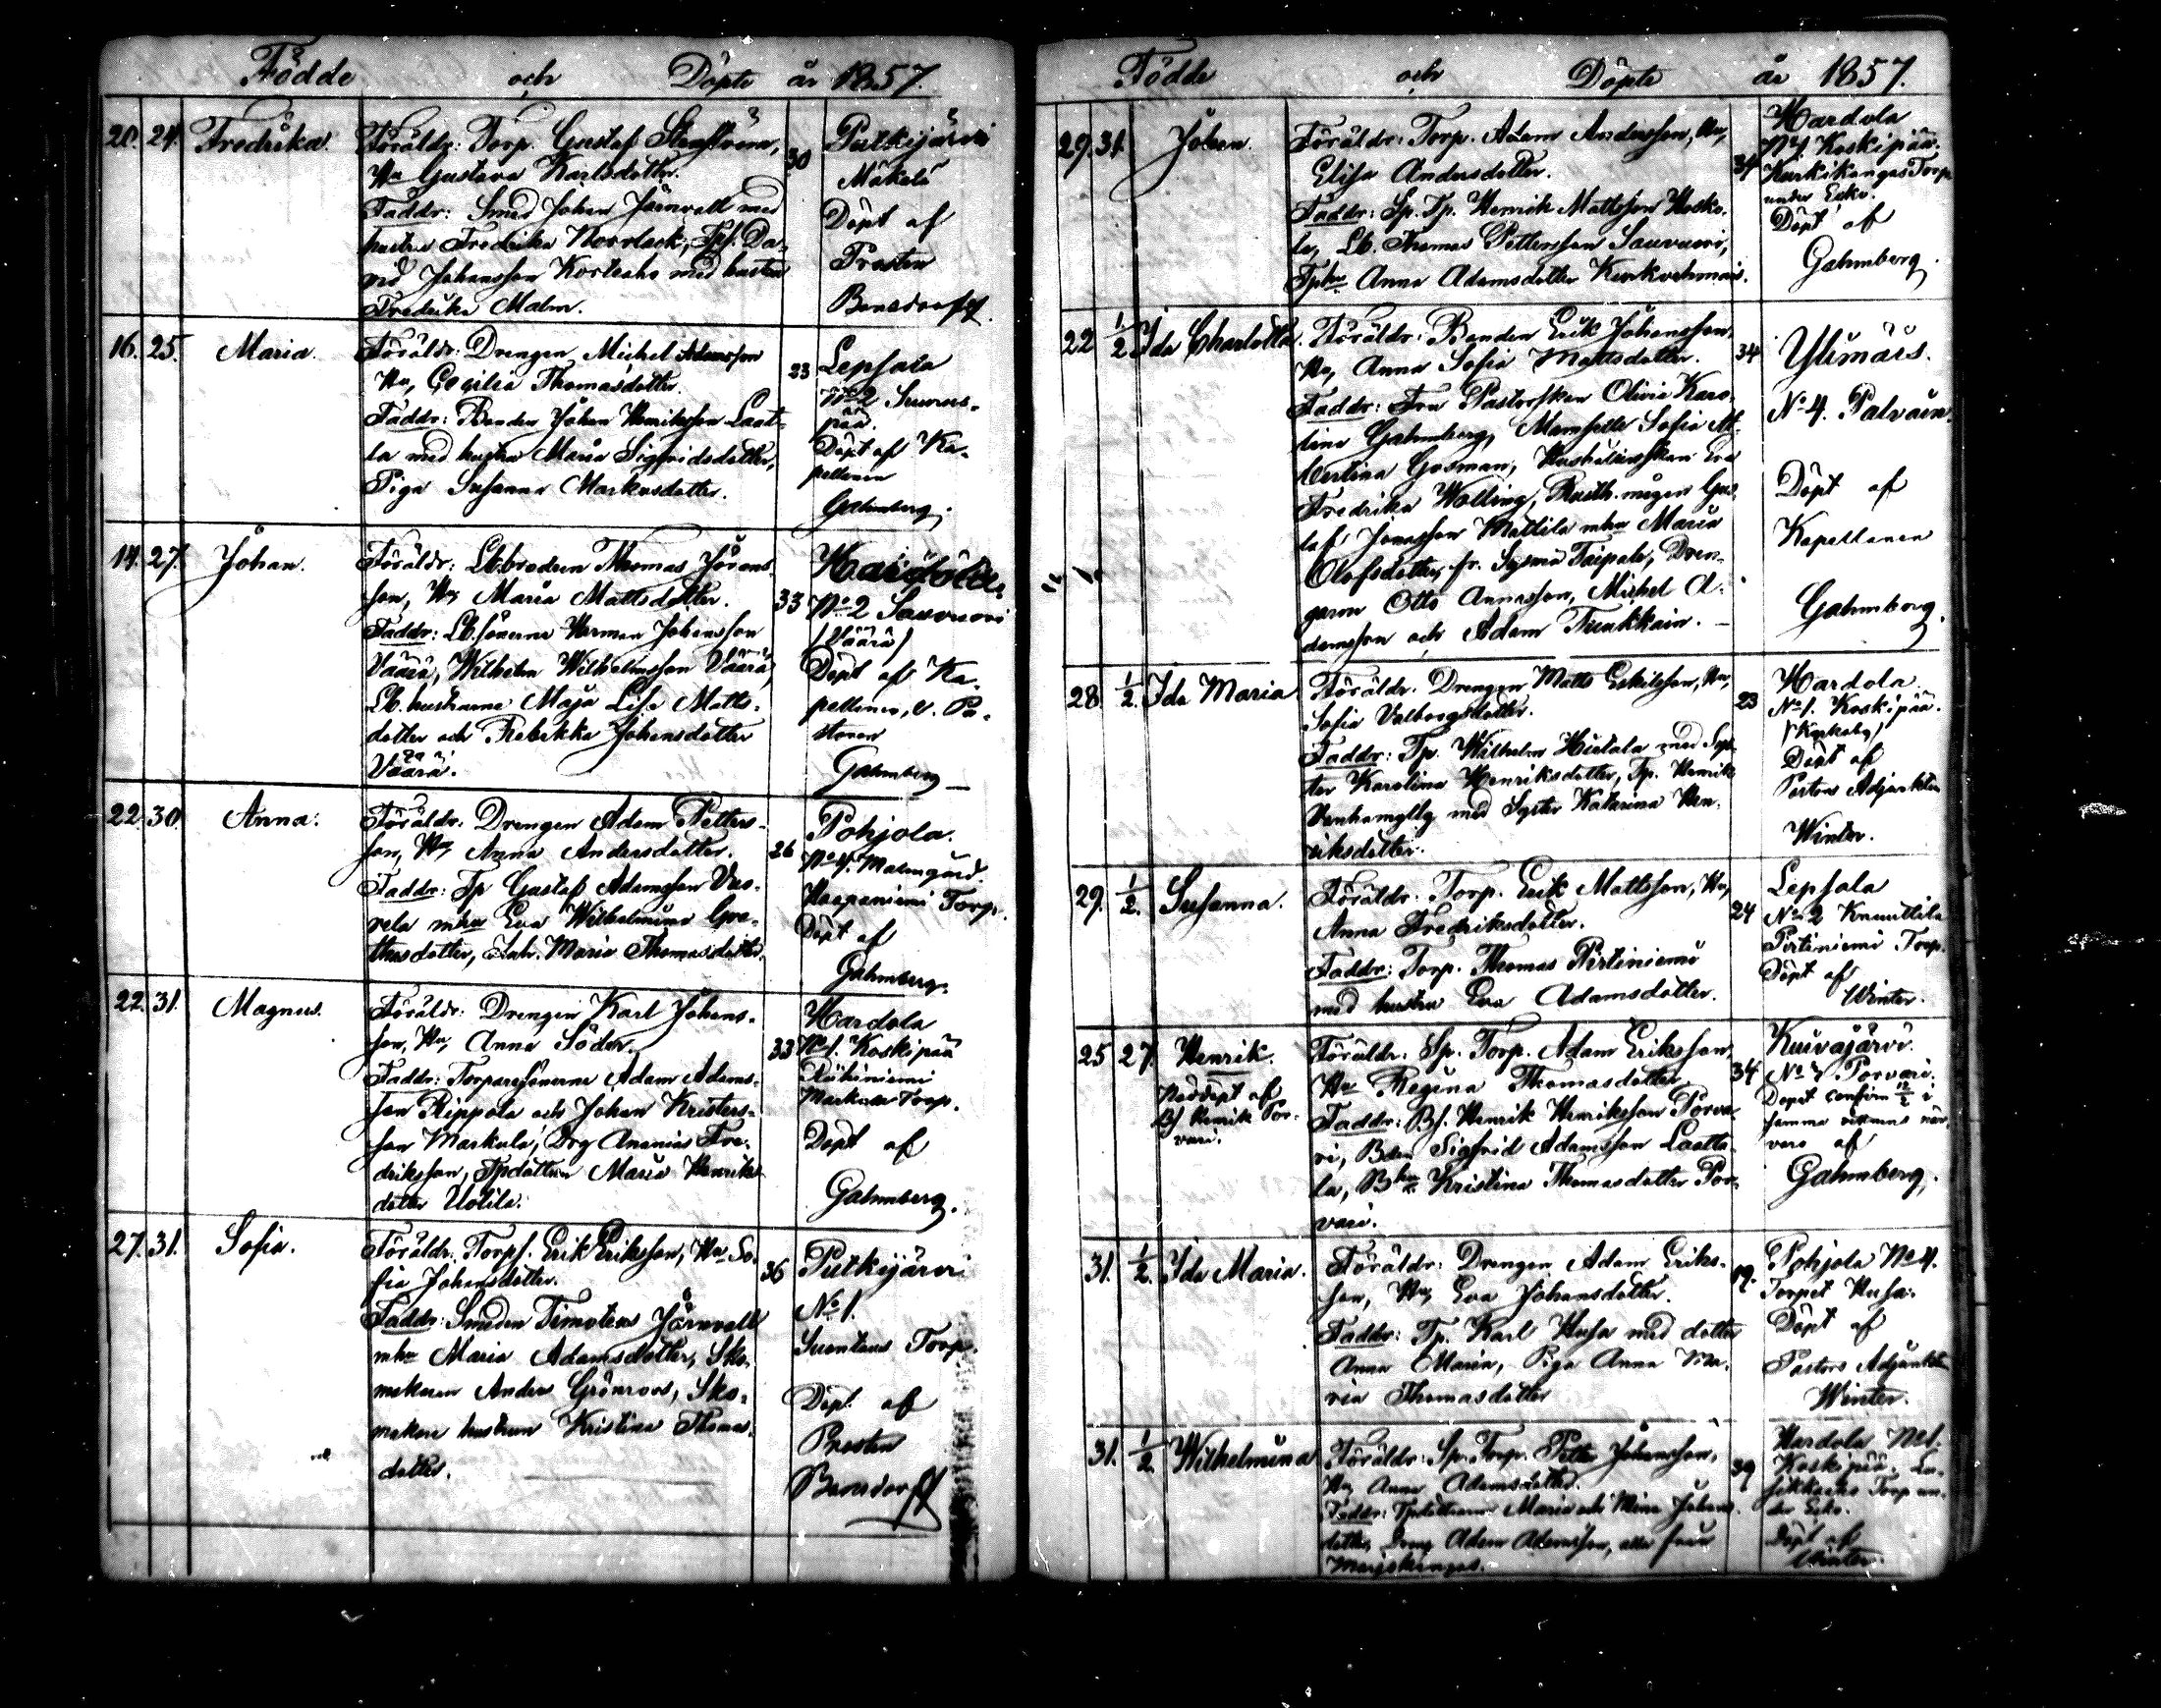 Födde och Döpte år 1857.
20. 24. Fredrika. Föräldr: Torp. Gustaf
Hu Gustava Karlsdotter. 30
Faddr: Smed Johan Järnvall med
hustru Fredrika Norrback, Tpf. Da-
vid Johansson Kortesaho med hustru
Fredrika Malm.
Putkijärvi
Mäkelä
Döpt af
Prosten
Bonsdorff.
16. 25. Maria. Föräldr: Drengen Michel Adamsson
Hu, Cecilia Thomasdotter. 23
Faddr: Bonden Johan Henriksson Laat-
la med hustru Maria Sigfridsdotter,
Piga Susanna Markusdotter.
Lepsala
No 2 Suurus-
pää.
Döpt af Ka-
pellanen
Gahmberg.
14. 27. Johan. Föräldr: Lb.brodren Thomas Jörans-
son, Hu, Maria Mattsdotter. 33
Faddr: Lb.sönerne Herman Johansson
Väärä, Wilhelm Wilhelmsson Väärä,
Lb.hustrurne Maja Lisa Matts-
dotter och Rebekka Johansdotter
Väärä.
No 2 Sauvuori
(Väärä)
Döpt af Ka-
pellanen, v. Pa-
storen
Gahmberg
22. 30. Anna. Föräldr: Drengen Adam Petters-
son, Hu, Anna Andersdotter. 26
Faddr: Tp Gustaf Adamsson
mhu Eva Wilhelmina
Inh. Maria Thomasdotter.
Pohjola.
No 4. Malmgård.
Haapaniemi Torp.
Döpt af
Gahmberg.
22. 31. Magnus. Föräldr: Drengen Karl Johans-
son, Hu, Anna Söder. 33
Faddr: Torparesönerne Adam Adams-
son Rippola och Johan Kristers-
son Markula, Drg Ananias Fre-
driksson, Tpdottren Maria Henriks-
dotter Uotila.
Hardola
No 1. Koskipää
Markula Torp.
Döpt af
Gahmberg.
27. 31. Sofia. Föräldr: Torpf. Erik Eriksson, Hu So-
fia Johansdotter. 36
Faddr: Smeden Timoteus Järnvall
mhu Maria Adamsdotter, Sko-
makaren Anders Grönroos, Sko-
makare hustrun Kristina Thomas-
dotter.
Putkijärvi
No 1.
Torp.
Döpt af
Prosten
Bonsdorff
Födde och Döpte år 1857.
29. 31. Johan. Föräldr: Torp. Adam Andersson, Hu,
Elisa Andersdotter. 34
Faddr: Sp. Tp. Henrik Mattsson Kosko-
la, Lb. Thomas Pettersson Sauvuori,
Tphu Anna Adamsdotter
Hardola
No 1 Koskipää.
Kurkikangas Torp
under Esko.
Döpt af
Gahmberg.
22 1/2 Ida Charlotta. Föräldr: Bonden Erik Johansson,
Hu, Anna Sofia Mattsdotter. 34
Faddr: Fru Pastorskan Olivia Karo-
lina Gahmberg, Mamsell Sofia Al-
bertina Gosman, Hushållerskan Eva
Fredrika Walling, Gus-
taf Jonasson Mattila mhu Maria
Olofsdotter, fr. Sysmä Taipale, Dren-
garne Otto Annasson, Michel A-
damsson och Adam
Ylimäis.
No 4. Palvain.
Döpt af
Kapellanen
Gahmberg.
28 1/2. Ida Maria Föräldr. Drengen Matts Eskilsson, Hu,
Sofia Valborgsdotter. 23
Faddr: Tp. Wilhelm Hietala med Sys-
ter Karolina Henriksdotter, Tp. Henrik
Vanhamylly med Syster Katarina Hen-
riksdotter.
Hardola.
No 1. Koskipää.
(Kyrkoby)
Döpt af
Pastors Adjunkten
Winter.
29. 1/2. Susanna. Föräldr. Torp. Erik Mattsson, Hu,
Anna Fredriksdotter. 24
Faddr: Torp. Thomas Pirtiniemi
med hustru Eva Adamsdotter.
Lepsala
No 2 Knuuttila
Pirtiniemi Torp.
Döpt af
Winter.
25 27. Henrik.
Nöddöpt af
Bf. Henrik Por-
vari.
Föräldr: Sp. Torp. Adam Eriksson,
Hu Regina Thomasdotter. 34
Faddr: Bf. Henrik Henriksson Porva-
ri, Bden Sigfrid Adamsson Laatta-
la, Bhu Kristina Thomasdotter Por-
vari.
Kuivajärvi.
Porvari.
Dopet confirm 12/2 i
samma vittnens när-
varo af
Gahmberg.
31. 1/2. Ida Maria. Föräldr: Drengen Adam Eriks-
son, Hu, Eva Johansdotter. 19.
Faddr: Tp. Karl Husa med dotter
Anna Maria, Piga Anna Ma-
ria Thomasdotter
Pohjola No 4.
Torpet Husa.
Döpt af
Pastors Adjunkten
Winter.
31. 1/2. Wilhelmina Föräldr: Sp. Torp. Petter Johansson,
Hu, Anna Adamsdotter. 39
Faddr: Tpdöttrarne Maria och Mina Johans-
dotter, Dreng Adam Adamsson, alla från
Hardola No 1.
Koskipää.
Torp un-
der Esko.
Döpt af
Winter.